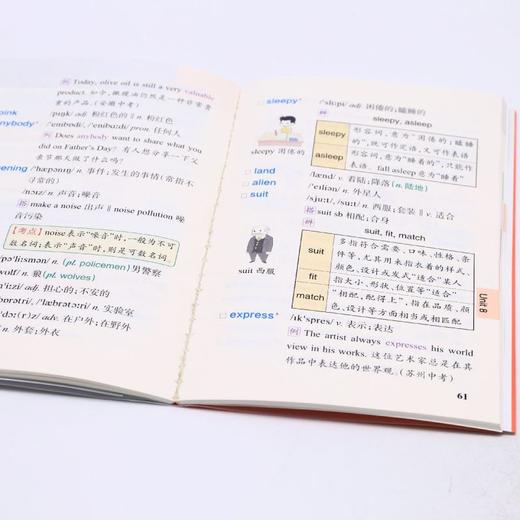 例 Today, olive oil is still a very valuable
product. 如今，橄榄油仍然是一种非常贵
重的产品。(安徽中考)
pink
/pɪŋk/ adj. 粉红色的 || n. 粉红色
anybody*
/'enibɒdi/, /'enibʌdi/ pron. 任何人
例 Does anybody want to share what you
did on Father's Day? 有人想分享一下父
亲节那天做了什么吗?
/'hæpənɪŋ/ n. 事件；发生的事情(常指不
寻常的)
/nɔɪz/ n. 声音；噪音
搭 make a noise 出声 || noise pollution 噪
音污染
【考点】noise表示"噪音"时，一般为不可
数名词；表示"声音"时，则是可数名词。
(pl. policemen) 男警察
n. 狼(pl. wolves)
adj. 担心的；不安的
/'læbrətɔːri/ n. 实验室
adv. 在户外；在野外
n. 外套；外衣
sleepy*
/'sliːpi/ adj. 困倦的；瞌睡的
辨
sleepy, asleep
sleepy 形容词，意为"困倦的；瞌睡
的"，既可作定语，又可作表语
asleep 形容词，意为"睡着的"，只能作
表语。fall asleep意为"睡着"
sleepy 困倦的
land
/lænd/ v. 着陆；降落(n. 陆地)
alien
/'eɪliən/ n. 外星人
suit
/sjuːt/, /suːt/ n. 西服；套装 || v. 适合
搭 suit sb 相配；合身
辨
suit, fit, match
suit 多指符合需要、口味、性格、条
件等，尤其用来指衣着的样式、
颜色、设计或发式"适合"某人
fit 指大小、形状、位置等"适合"
match "相配，配得上"，指在品质、颜
色、设计等方面相当或相匹配
suit 西服
express*
/ɪk'spres/ v. 表示；表达
例 The artist always expresses his world
view in his works. 这位艺术家总是在其
作品中表达他的世界观。(苏州中考)
Unit 8
61